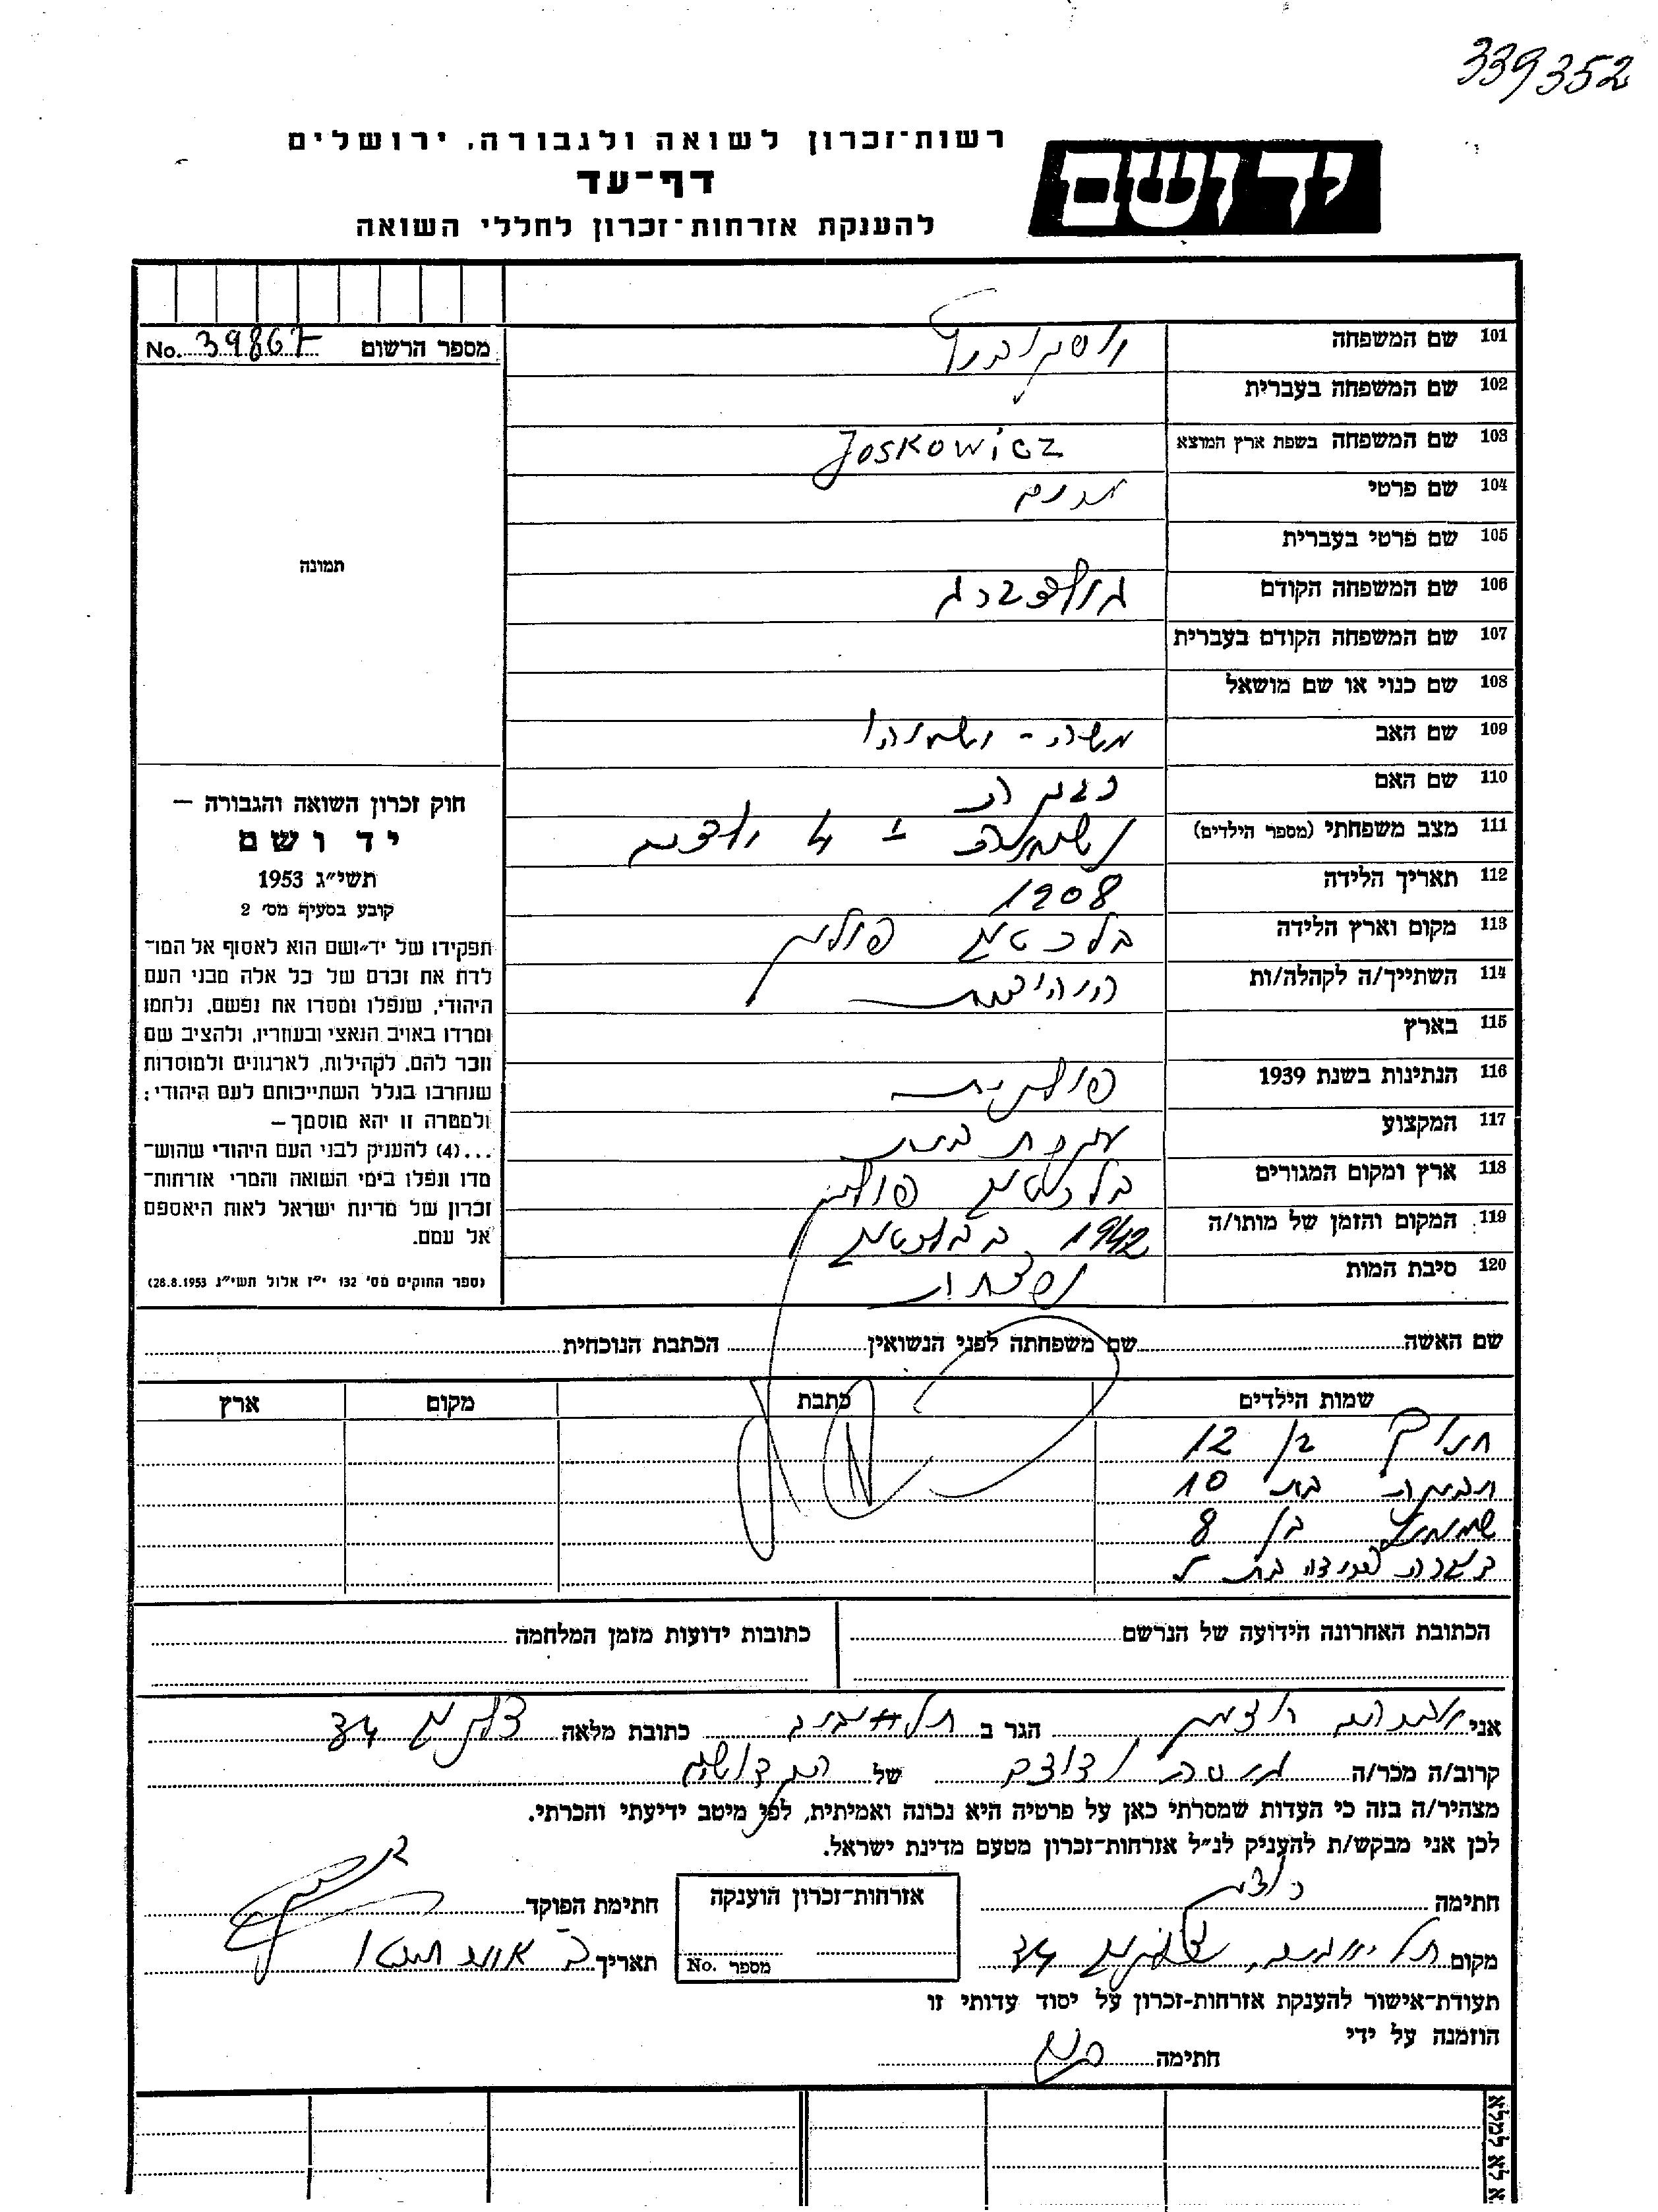 339352
ידושם
רשות־זכרון לשואה ולגבורה, ירושלים
דף־עד
להענקת אזרחות־זכרון לחללי השואה
מספר הרשום No. 39867
תמונה
חוק זכרון השואה והגבורה —
יד ושם
תשי״ג 1953
קובע בסעיף מס׳ 2
תפקידו של יד־ושם הוא לאסוף אל המו־
לדת את זכרם של כל אלה מבני העם
היהודי, שנפלו ומסרו את נפשם, נלחמו
ומרדו באויב הנאצי ובעוזריו, ולהציב שם
וזכר להם, לקהילות, לארגונים ולמוסדות
שנחרבו בגלל השתייכותם לעם היהודי;
ולמטרה זו יהא מוסמך —
...(4) להעניק לבני העם היהודי שהוש־
מדו ונפלו בימי השואה והמרי אזרחות־
זכרון של מדינת ישראל לאות היאספם
אל עמם.
(ספר החוקים מס׳ 132 י״ז אלול תשי״ג 28.8.1953)
101 שם המשפחה יושקוביץ
102 שם המשפחה בעברית
103 שם המשפחה בשפת ארץ המוצא Joskowicz
104 שם פרטי
105 שם פרטי בעברית
106 שם המשפחה הקודם גולדברג
107 שם המשפחה הקודם בעברית
108 שם כנוי או שם מושאל
109 שם האב משה -
110 שם האם רבקה
111 מצב משפחתי (מספר הילדים) 4 ילדים
112 תאריך הלידה 1908
113 מקום וארץ הלידה פולין
114 השתייך/ה לקהלה/ות היהודית
115 בארץ
116 הנתינות בשנת 1939 פולנית
117 המקצוע עקרת בית
118 ארץ ומקום המגורים פולין
119 המקום והזמן של מותו/ה 1942
120 סיבת המות
שם האשה שם משפחתה לפני הנשואין הכתבת הנוכחית
שמות הילדים כתבת מקום ארץ
חנוך בן 12
רבקה בת 10
שמואל בן 8
בת
הכתובת האחרונה הידועה של הנרשם כתובות ידועות מזמן המלחמה
אני אברהם הגר ב תל אביב כתובת מלאה
קרוב/ה מכר/ה של
מצהיר/ה בזה כי העדות שמסרתי כאן על פרטיה היא נכונה ואמיתית, לפי מיטב ידיעתי והכרתי.
לכן אני מבקש/ת להעניק לנ״ל אזרחות־זכרון מטעם מדינת ישראל.
חתימה אזרחות־זכרון הוענקה חתימת הפוקד
מקום תל אביב, מספר No. תאריך
תעודת־אישור להענקת אזרחות־זכרון על יסוד עדותי זו
הוזמנה על ידי
חתימה
נא לא למלא